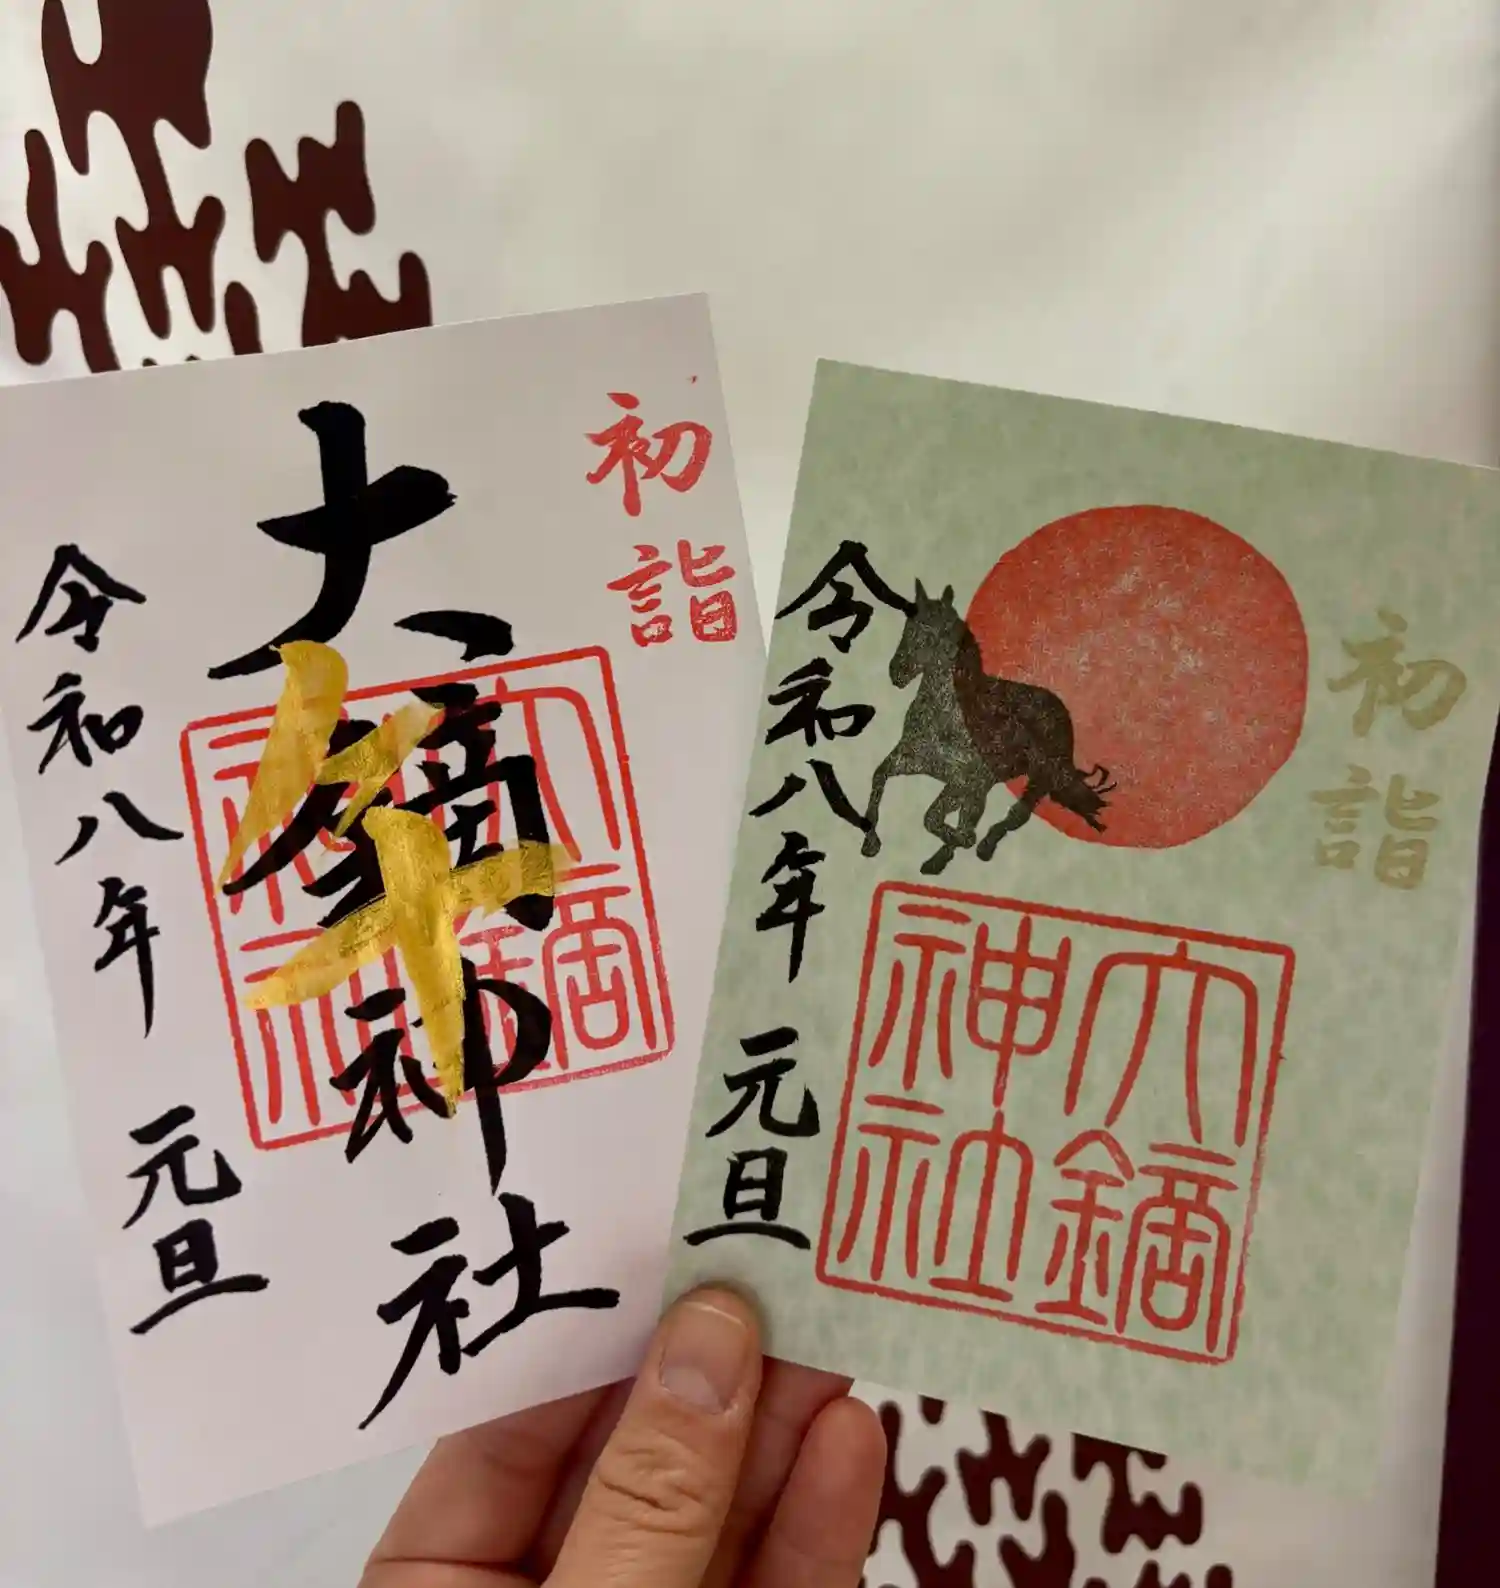 初詣
大鏑神社
午
大鏑
神社
令和八年 元旦
初詣
大鏑
神社
令和八年 元旦